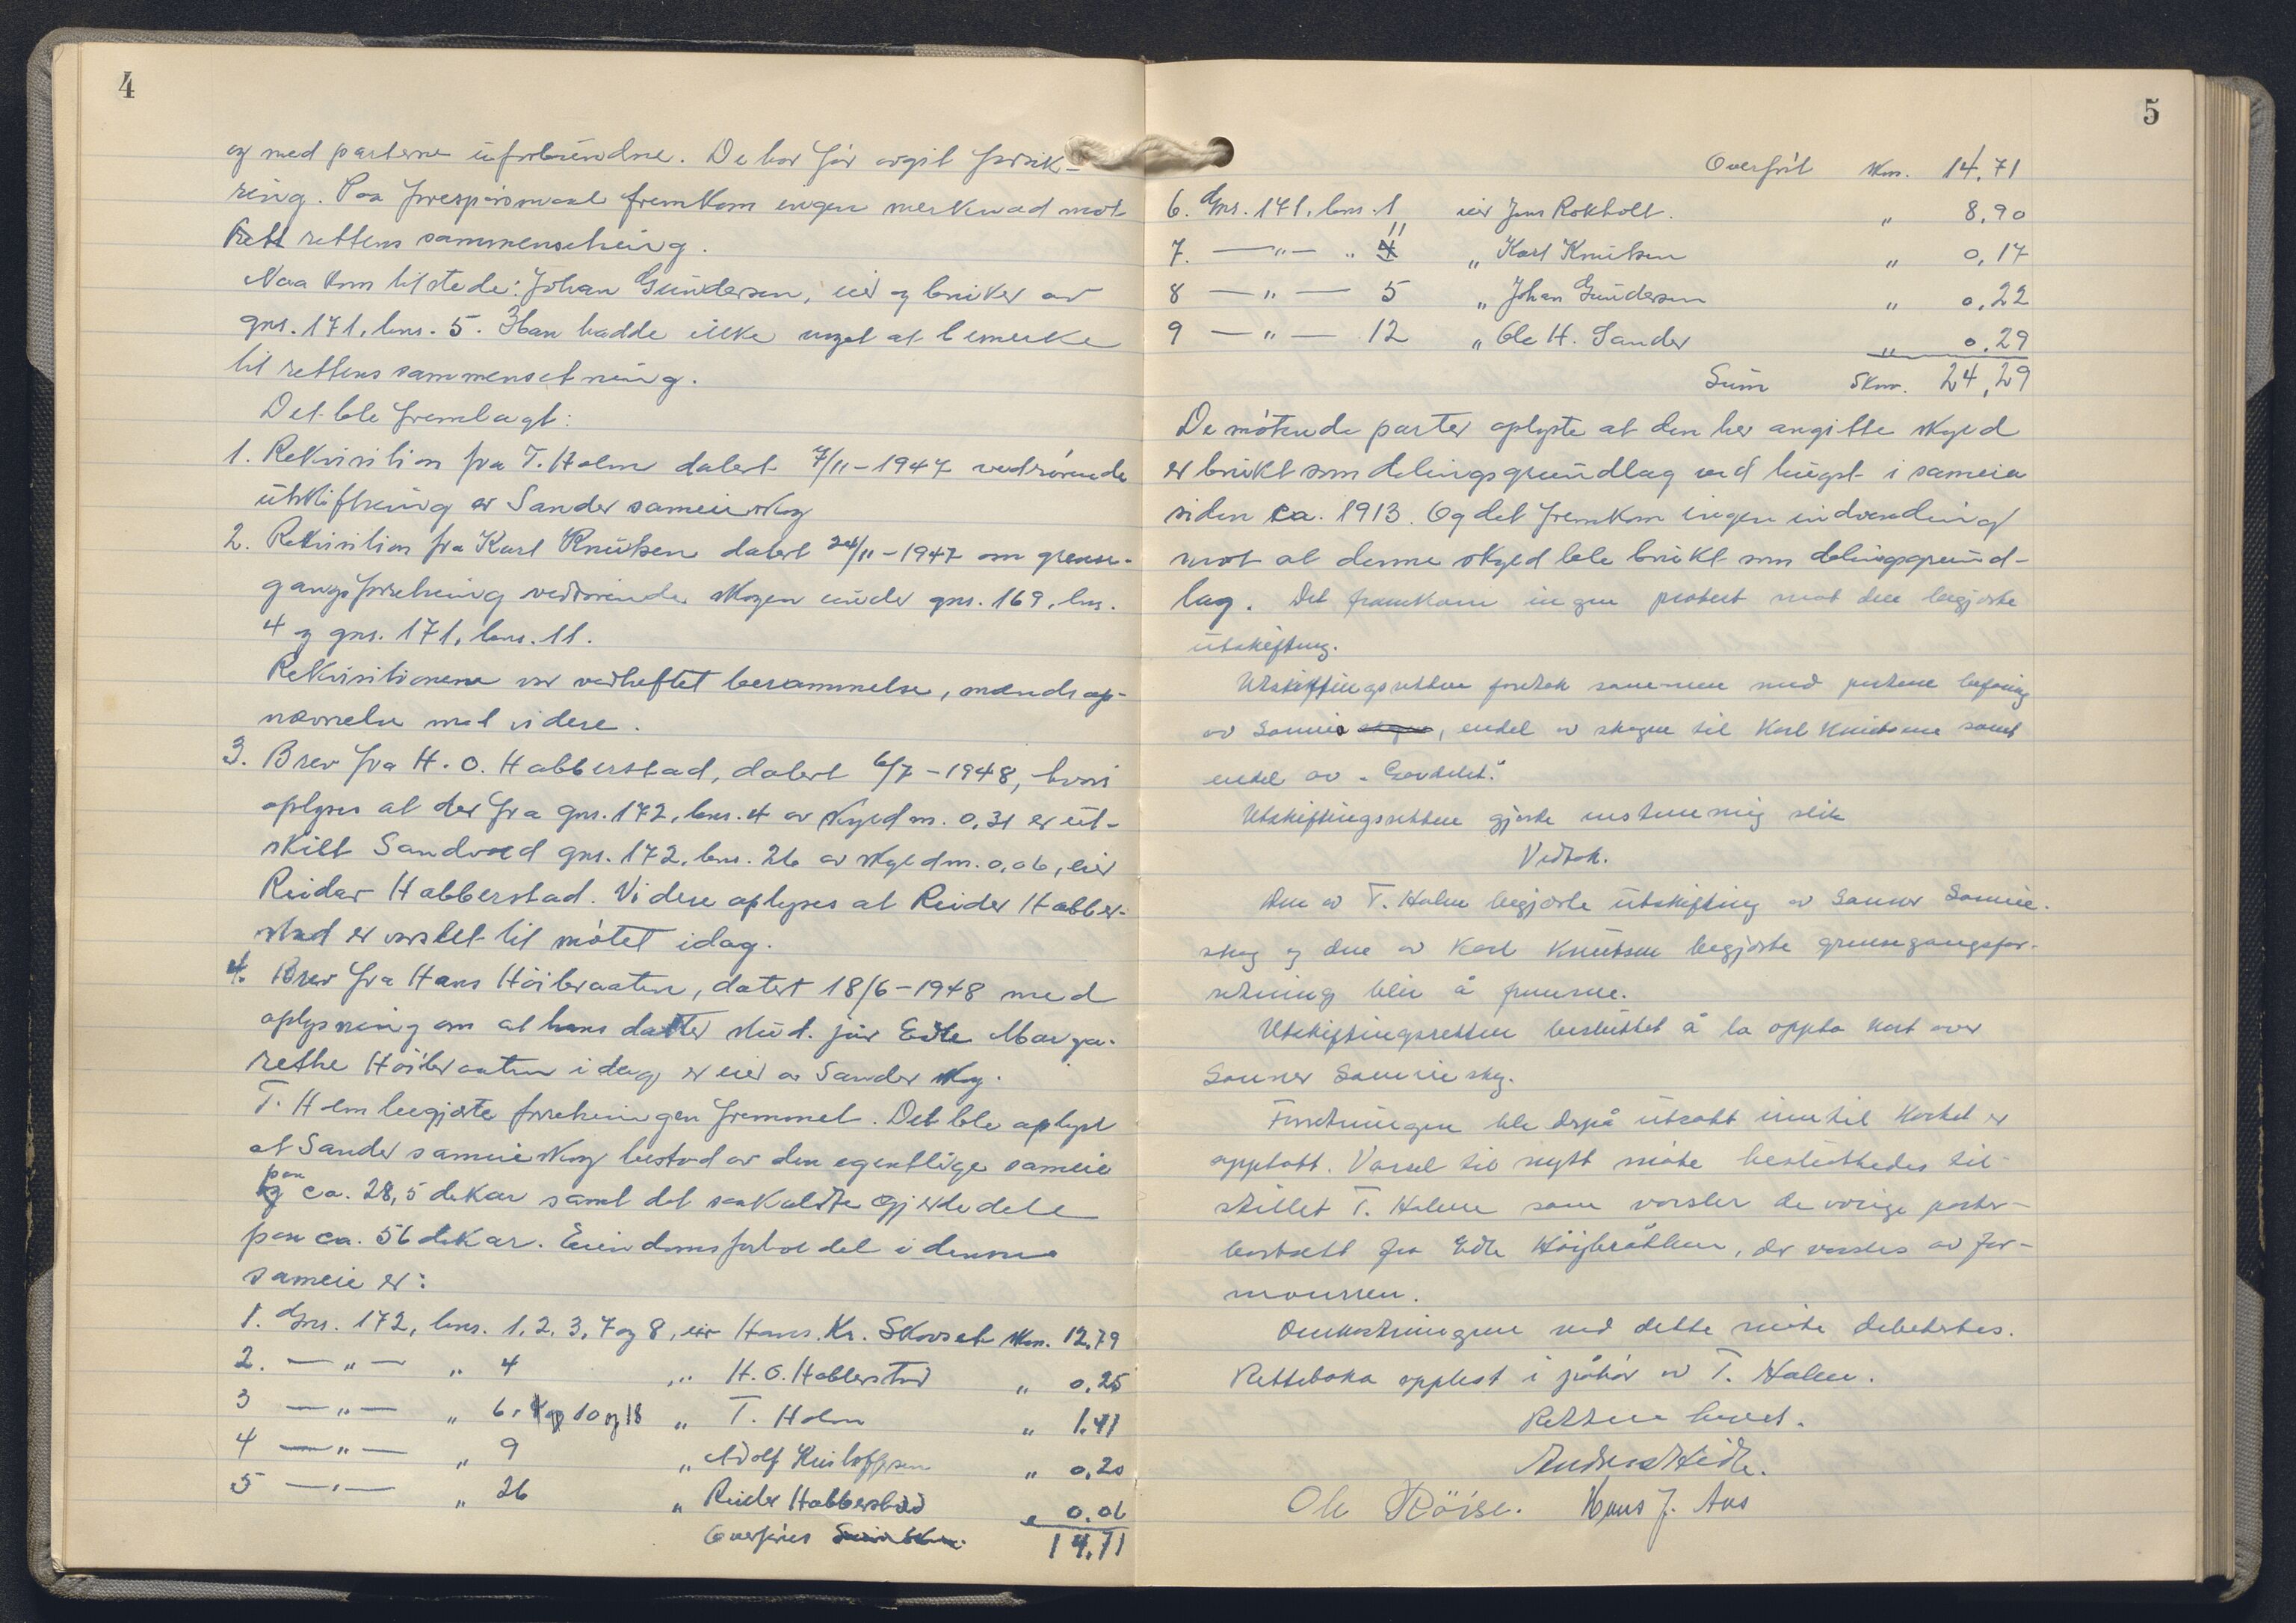 4
og med parterne uforbundne. De har før avgit forsik-
ring. Paa forespørsmaal fremkom ingen merknad mot
rettens sammensetning.
Naa kom tilstede: Johan Gundersen, eier og bruker av
gnr. 171, bnr. 5. Han hadde ikke noget at bemerke
til rettens sammensetning.
Det ble fremlagt:
1. Rekvisition fra T. Holm datert 7/11-1947 vedrørende
utskiftning av Sander sameieskog
2. Rekvisition fra Karl Knutsen datert 24/11-1947 om grense-
gangsforretning vedrørende skogen under gnr. 169, bnr.
4 og gnr. 171, bnr. 11.
Rekvisitionene var vedheftet berammelse, mandsop-
nævnelse m.v. videre.
3. Brev fra H. O. Habberstad, datert 6/7-1948, hvori
oplyses at der fra gnr. 172, bnr. 4 av skyld m. 0,31 er ut-
skilt Sandvold gnr. 172, bnr. 26 av skyld m. 0,06, eier
Reidar Habberstad. Videre oplyses at Reidar Habber-
stad er varslet til møtet idag.
4. Brev fra Hans Höibraaten, datert 18/6-1948 med
oplysning om at hans datter stud. jur Edle Marga-
rethe Höibraaten idag er eier av Sander skog.
T. Holm begjærte forretningen fremmet. Det ble oplyst
at Sander sameieskog bestod av den egentlige sameie
paa ca. 28,5 dekar samt det saakaldte Gjerdedele
paa ca. 56 dekar. Eiendomsforholdet i denne
sameie er:
1. Gnr. 172, bnr. 1, 2, 3, 7 og 8, eier Hans Kr. Skovseth skm. 12,79
2. — " — " 4 " H. O. Habberstad " 0,25
3 — " — " 6, 10 og 18 " T. Holm " 1,41
4 — " — " 9 " Adolf Kristoffersen " 0,20
5 — " — " 26 " Reidar Habberstad " 0,06
Overføres 14,71
5
Overført skm. 14,71
6. Gnr. 171, bnr. 1 eier Jens Rokholt. " 8,90
7. — " — " 11 " Karl Knutsen " 0,17
8 — " — 5 " Johan Gundersen " 0,22
9 — " — 12 " Ole H. Sander " 0,29
Sum Skm. 24,29
De møtende parter oplyste at den her angitte skyld
er brukt som delingsgrundlag ved hugst i sameia
siden ca. 1913. Og det fremkom ingen indvending
mot at denne skyld ble brukt som delingsgrund-
lag. Det framkom ingen protest mot den begjærte
utskifting.
Utskiftingsretten foretok sammen med partene befaring
av Sameie, endel av skogen til Karl Knutsen samt
endel av "Gjerdelet".
Utskiftingsretten gjorde enstemmig slik
Vedtak.
Den av T. Holm begjærte utskifting av Sanner Sameie-
skog og den av Karl Knutsen begjærte grensegangsfor-
retning blir å fremme.
Utskiftingsretten besluttet å la oppta kart over
Sanner Sameieskog.
Forretningen ble derpå utsatt inntil kartet er
opptatt. Varsel til nytt møte besluttedes til-
stillet T. Holm som varsler de øvrige parter -
bortsett fra Edle Höybråthen, der varsles av for-
mannen.
Omkostningene ved dette møte debeteres.
Rettsboka opplest i påhør av T. Holm.
Retten hevet.
Andreas Heidle.
Ole Röise. Hans J. Aas